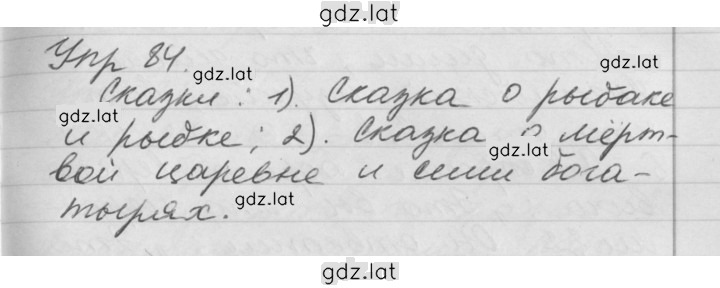 gdz.lat
Упр 84.
gdz.lat
Сказки: 1). Сказка о рыбаке
gdz.lat
и рыбке; 2). Сказка о мёрт-
gdz.lat
вой царевне и семи бога-
тырях.
gdz.lat
gdz.lat